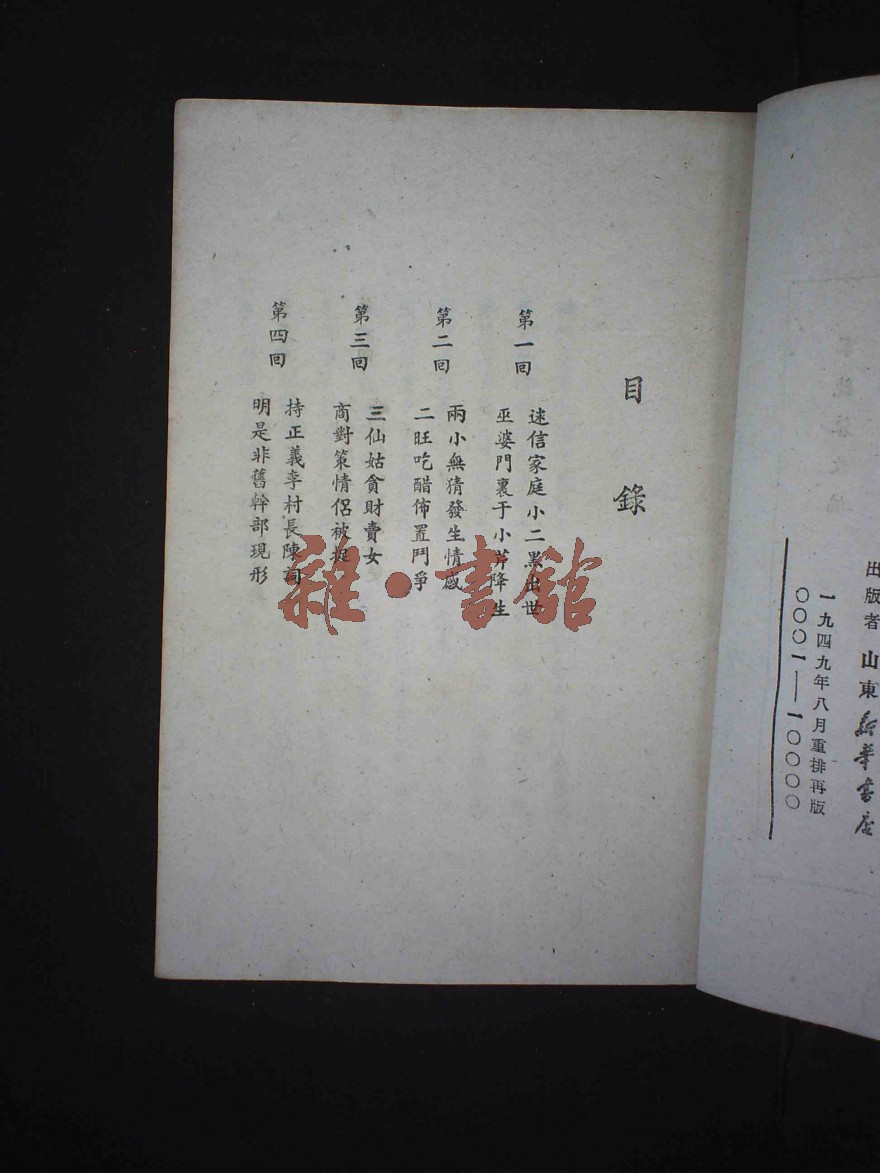 目錄
第一回
迷信家庭小二黑出世
巫婆門裏于小芹降生
第二回
兩小無猜發生情感
二旺吃醋佈置鬥爭
第三回
三仙姑貪財賣女
商對策情侶被捉
第四回
持正義李村長陳詞
明是非舊幹部現形
雜·書館
出版者 山東新華書店
一九四九年八月重排再版
〇〇〇一——一〇〇〇〇